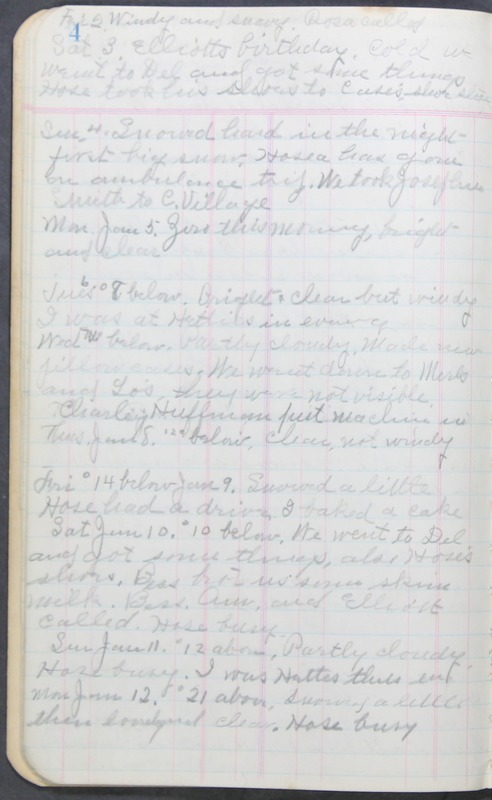 Fri 2 Windy and snowy. Rosa called
4
Sat 3, Elliotts birthday. Cold
Went to Del and got some things
Hose took his shoes to Cases shoe
Sun, 4. Snowed hard in the night
first big snow, Hosea has gone
on ambulance trip. We took Josephine
Smith to C. Village
Mon. Jan 5. Zero this morning, bright
and clear
Tues 6 ° 8 below. Bright & clear but windy
I was at Hetties in
Wed 7 below. Partly cloudy. Made new
pillow cases. We went down to
and Lo's they were not visible.
Charley Huffman put machine in
Thus. Jan 8. 12° below, Clear, not windy
Fri ° 14 below Jan 9. Snowed a little
Hose had a drive I baked a cake
Sat Jan 10. ° 10 below. We went to Del
and got some things, also Hose's
shoes. Bess bro't us some skim
milk. Bess. Ann, and Elliott
called. Hose busy.
Sun Jan 11. ° 12 above, Partly cloudy
Hose busy. I was Hetties
Mon Jan 12. ° 21 above, Snowing a little
then clear. Hose busy